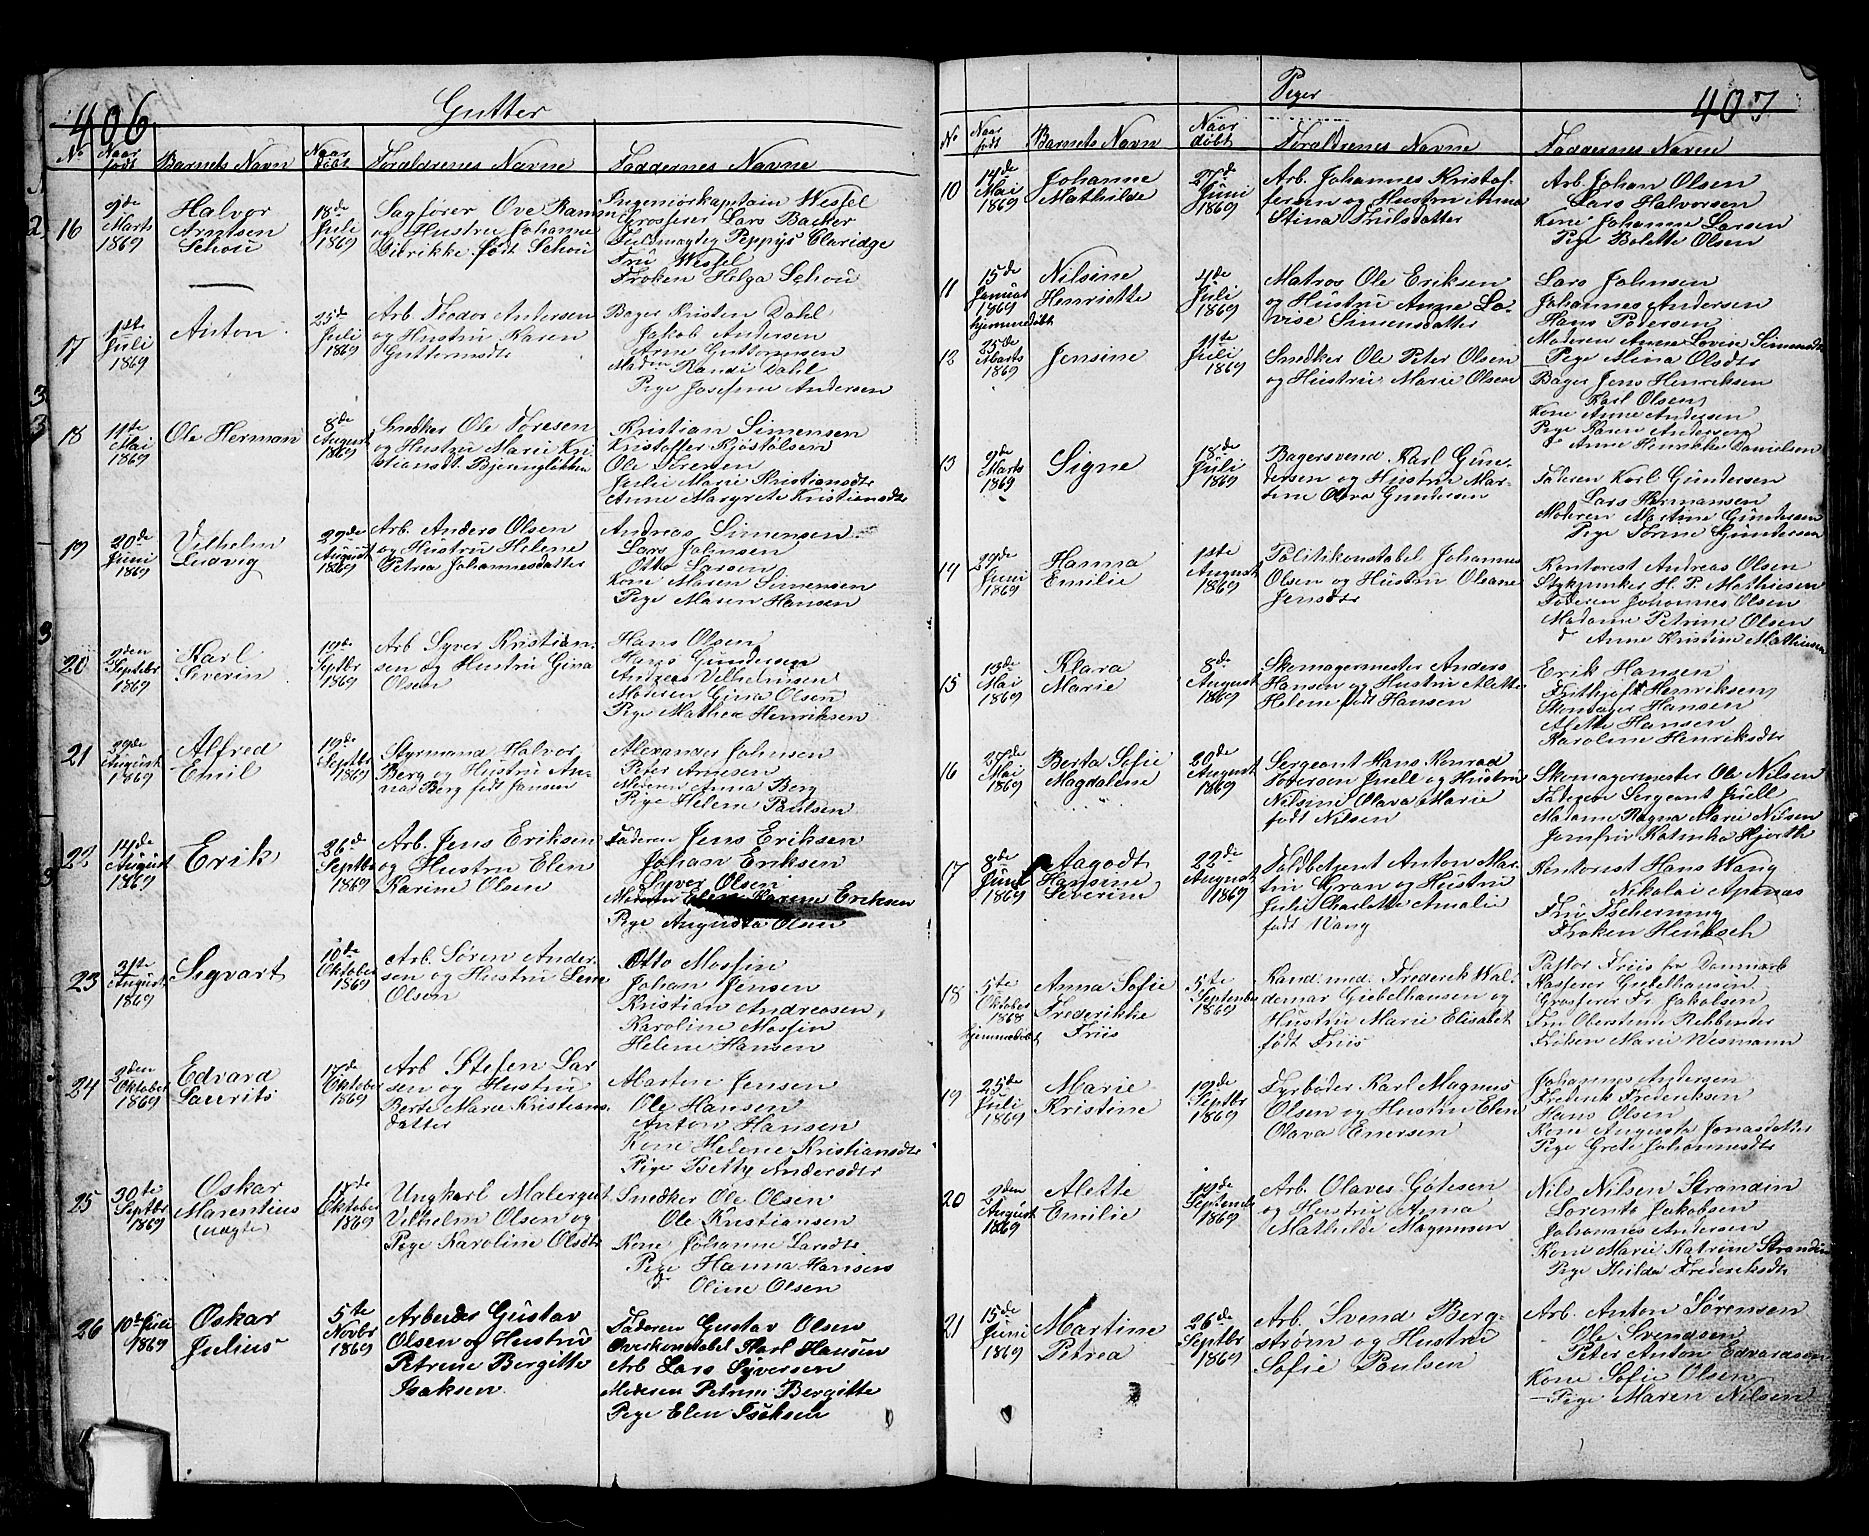 406
Gutter
No
Naar født
Barnets Navn
Naar døbt
Forældrenes Navne
Faddernes Navne
16
9de Marts 1869
Halvor
Arntsen
Schou
18de Juli 1869
Sagfører Ove Ramm
og Hustru Johanne
Didrikke født Schou
Ingeniørkaptain Wessel
Grosserer Lars Backer
Fuldmægtig Peppys Claridge
Fru Wessel
Frøken Helga Schou
17
1ste Juli 1869
Anton
25de Juli 1869
Arb. Teodor Andersen
og Hustru Karen
Guttormsdtr
Bager Kristen Dahl
Jakob Andersen
Arne Guttormsen
Madm Randi Dahl
Pige Josefine Andersen
18
11te Mai 1869
Ole Herman
8de August 1869
Snedker Ole Toresen
og Hustru Marie Kri-
stiansdt.
Kristian Simensen
Kristoffer Kjøstolsen
Ole Toresen
Julie Marie Kristiansdtr
Anne Margrete Kristiansdtr
19
20de Juni 1869
Vilhelm
Ludvig
29de August 1869
Arb. Anders Olsen
og Hustru Helene
Petrea Johannesdatter
Andreas Simensen
Lars Johnsen
Otto Larsen
Kone Maren Simensen
Pige Maren Hansen
20
2den Septbr 1869
Karl
Severin
19de Septbr 1869
Arb Syver Kristian-
sen og Hustru Gina
Olsen
Hans Olsen
Hans Gundersen
Andreas Vilhelmsen
Moderen Gina Olsen
Pige Mathea Henriksen
21
29de August 1869
Alfred
Emil
19de Septbr 1869
Styrmand Halvor
Berg og Hustru An-
na Berg født Jansen
Alexander Johnsen
Peter Arnesen
Moderen Anna Berg
Pige Helene Paulsen
22
14de August 1869
Erik
26de Septbr 1869
Arb. Jens Eriksen
og Hustru Elen
Karine Olsen
Faderen Jens Eriksen
Johan Eriksen
Syver Olsen
Moderen Elen Karine Eriksen
Pige Augusta Olsen
23
21te August 1869
Sigvart
10de Oktober 1869
Arb. Søren Ander-
sen og Hustru Lene
Olsen
Otto Mossin
Johan Jensen
Kristian Andreasen
Karoline Mossin
Helene Hansen
24
2den Oktober 1869
Edvard
Laurits
17de Oktober 1869
Arb Stefen Lar-
sen og Hustru
Berte Marie Kristians-
datter
Marten Jensen
Ole Hansen
Anton Hansen
Kone Helene Kristiansdtr
Pige Betty Andersdtr
25
30te Septbr 1869
Oskar
Marentius
(uægte)
17de Oktober 1869
Ungkarl Malergut
Vilhelm Olsen og
Pige Karoline Olsdtr
Snedker Ole Olsen
Ole Kristiansen
Kone Johanne Larsdtr
Pige Hanna Hansen
do Oline Olsen
26
10de Juli 1869
Oskar
Julius
5te Novbr 1869
Arbeider Gustav
Olsen og Hustru
Petrine Bergitte
Isaksen
Faderen Gustav Olsen
Overkonstabel Karl Hansen
Arb Lars Syversen
Moderen Petrine Bergitte
Pige Elen Isaksen
Piger
407
No
Naar født
Barnets Navn
Naar døbt
Forældrenes Navne
Faddernes Navne
10
14de Mai 1869
Johanne
Mathilde
27de Juni 1869
Arb. Johannes Kristof-
fersen og Hustru Anna
Stina Trulsdatter
Arb. Johan Olsen
Lars Halvorsen
Kone Johanne Larsen
Pige Bolette Olsen
11
15de Januar 1869
hjemmedøbt
Nilsine
Henriette
4de Juli 1869
Matros Ole Eriksen
og Hustru Anne Lo-
vise Simensdatter
Lars Johnsen
Johannes Andersen
Hans Petersen
Moderen Anne Lovise Simensdtr
Pige Mina Olsdtr
12
25de Marts 1869
Jensine
11te Juli 1869
Snedker Ole Peter Olsen
og Hustru Marie Olsen
Bager Jens Henriksen
Karl Olsen
Kone Anne Andersen
Pige Karen Andersen
do Anne Henrikke Danielsen
13
9de Marts 1869
Signe
18de Juli 1869
Bagersvend Karl Gun-
dersen og Hustru Mar-
tine Olava Gundersen
Faderen Karl Gundersen
Lars Hermansen
Moderen Martine Gundersen
Pige Torine Gundersen
14
29de Juni 1869
Hanna
Emilie
1ste August 1869
Politikonstabel Johannes
Olsen og Hustru Olsane
Jensdtr
Kontorist Andreas Olsen
Stykjunker H. P. Mathiesen
Faderen Johannes Olsen
Madame Petrine Olsen
do Anne Kristine Mathiesen
15
13de Mai 1869
Klara
Marie
8de August 1869
Skomagermester Anders
Hansen og Hustru Alette
Helene født Hansen
Erik Hansen
Frithjof Henriksen
Skomager Hansen
Alette Hansen
Karoline Henriksdtr
16
27de Mai 1869
Berta Sofie
Magdalene
20de August 1869
Sergeant Hans Konrad
Povelsen Juell og Hustru
Nilsine Olava Marie
født Nilsen
Skomagermester Ole Nilsen
Faderen Sergeant Juell
Madame Ragna Marie Nilsen
Jomfru Katinka Hjorth
17
8de Juni 1869
Aagodt
Hansine
Severine
22de August 1869
Toldbetjent Anton Mar-
tin Gran og Hustru
Julie Charlotte Amalie
født Wang
Kontorist Hans Wang
Nikolai Apenæs
Fru Tscherning
Frøken Heubsch
18
5te Oktober 1868
hjemmedøbt
Anna Sofie
Frederikke
Friis
5te Septembr 1869
Kand. med. Frederik Wal-
demar Giebelhausen og
Hustru Marie Elisabet
født Friis
Pastor Friis fra Danmark
Kasserer Giebelhausen
Grosserer Fr. Jakobsen
Fru Oberstinde Rehbinder
Frøken Marie Wesmann
19
25de Juli 1869
Marie
Kristine
19de Septbr 1869
Fyrbøder Karl Magnus
Olsen og Hustru Elen
Olava Enersen
Johannes Andersen
Frederik Frederiksen
Hans Olsen
Kone Augusta Jonasdatter
Pige Grete Johannesdtr
20
2den August 1869
Alette
Emilie
19de Septembr 1869
Arb. Olaves Gøtesen
og Hustru Anna
Mathilde Magnusen
Nils Nilsen Stranden
Lorents Jakobsen
Johannes Andersen
Kone Marie Katrine Stranden
Pige Hulda Frederiksdtr
21
15de Juni 1869
Martine
Petrea
26de Septbr 1869
Arb. Svend Berg-
strøm og Hustru
Sofie Paulsen
Arb. Anton Sørensen
Ole Svendsen
Peter Anton Edvardsen
Kone Sofie Olsen
Pige Maren Nilsen